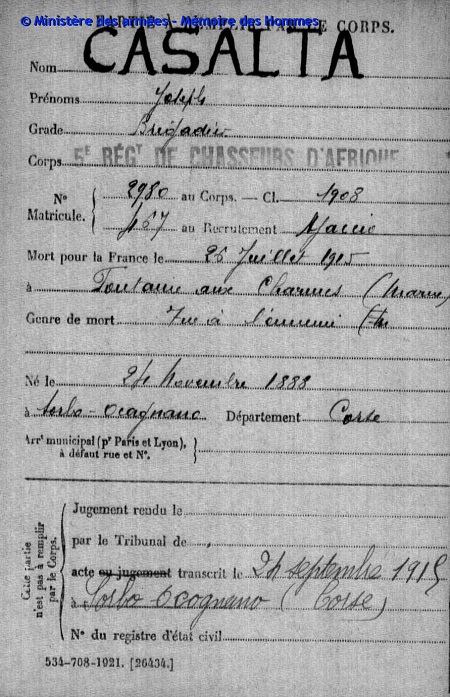 © Ministère des armées - Mémoire des Hommes
PARTIE À REMPLIR PAR LE CORPS.
CASALTA
Nom
Prénoms Joseph
Grade Brigadier
Corps 5E RÉGT DE CHASSEURS D'AFRIQUE
N° Matricule.
2980 au Corps. — Cl. 1908
467 au Recrutement Ajaccio
Mort pour la France le 26 Juillet 1915
à Fontaine aux Charmes (Marne)
Genre de mort Tué à l'ennemi
Né le Novembre 1888
à Sorbo-Ocagnano Département Corse
Arrt municipal (pr Paris et Lyon),
à défaut rue et N°.
Cette partie
n'est pas à remplir
par le Corps.
Jugement rendu le
par le Tribunal de
acte ou jugement transcrit le 24 septembre 1915
à Sorbo Ocognano (Corse)
N° du registre d'état civil
534-708-1921. [26434.]